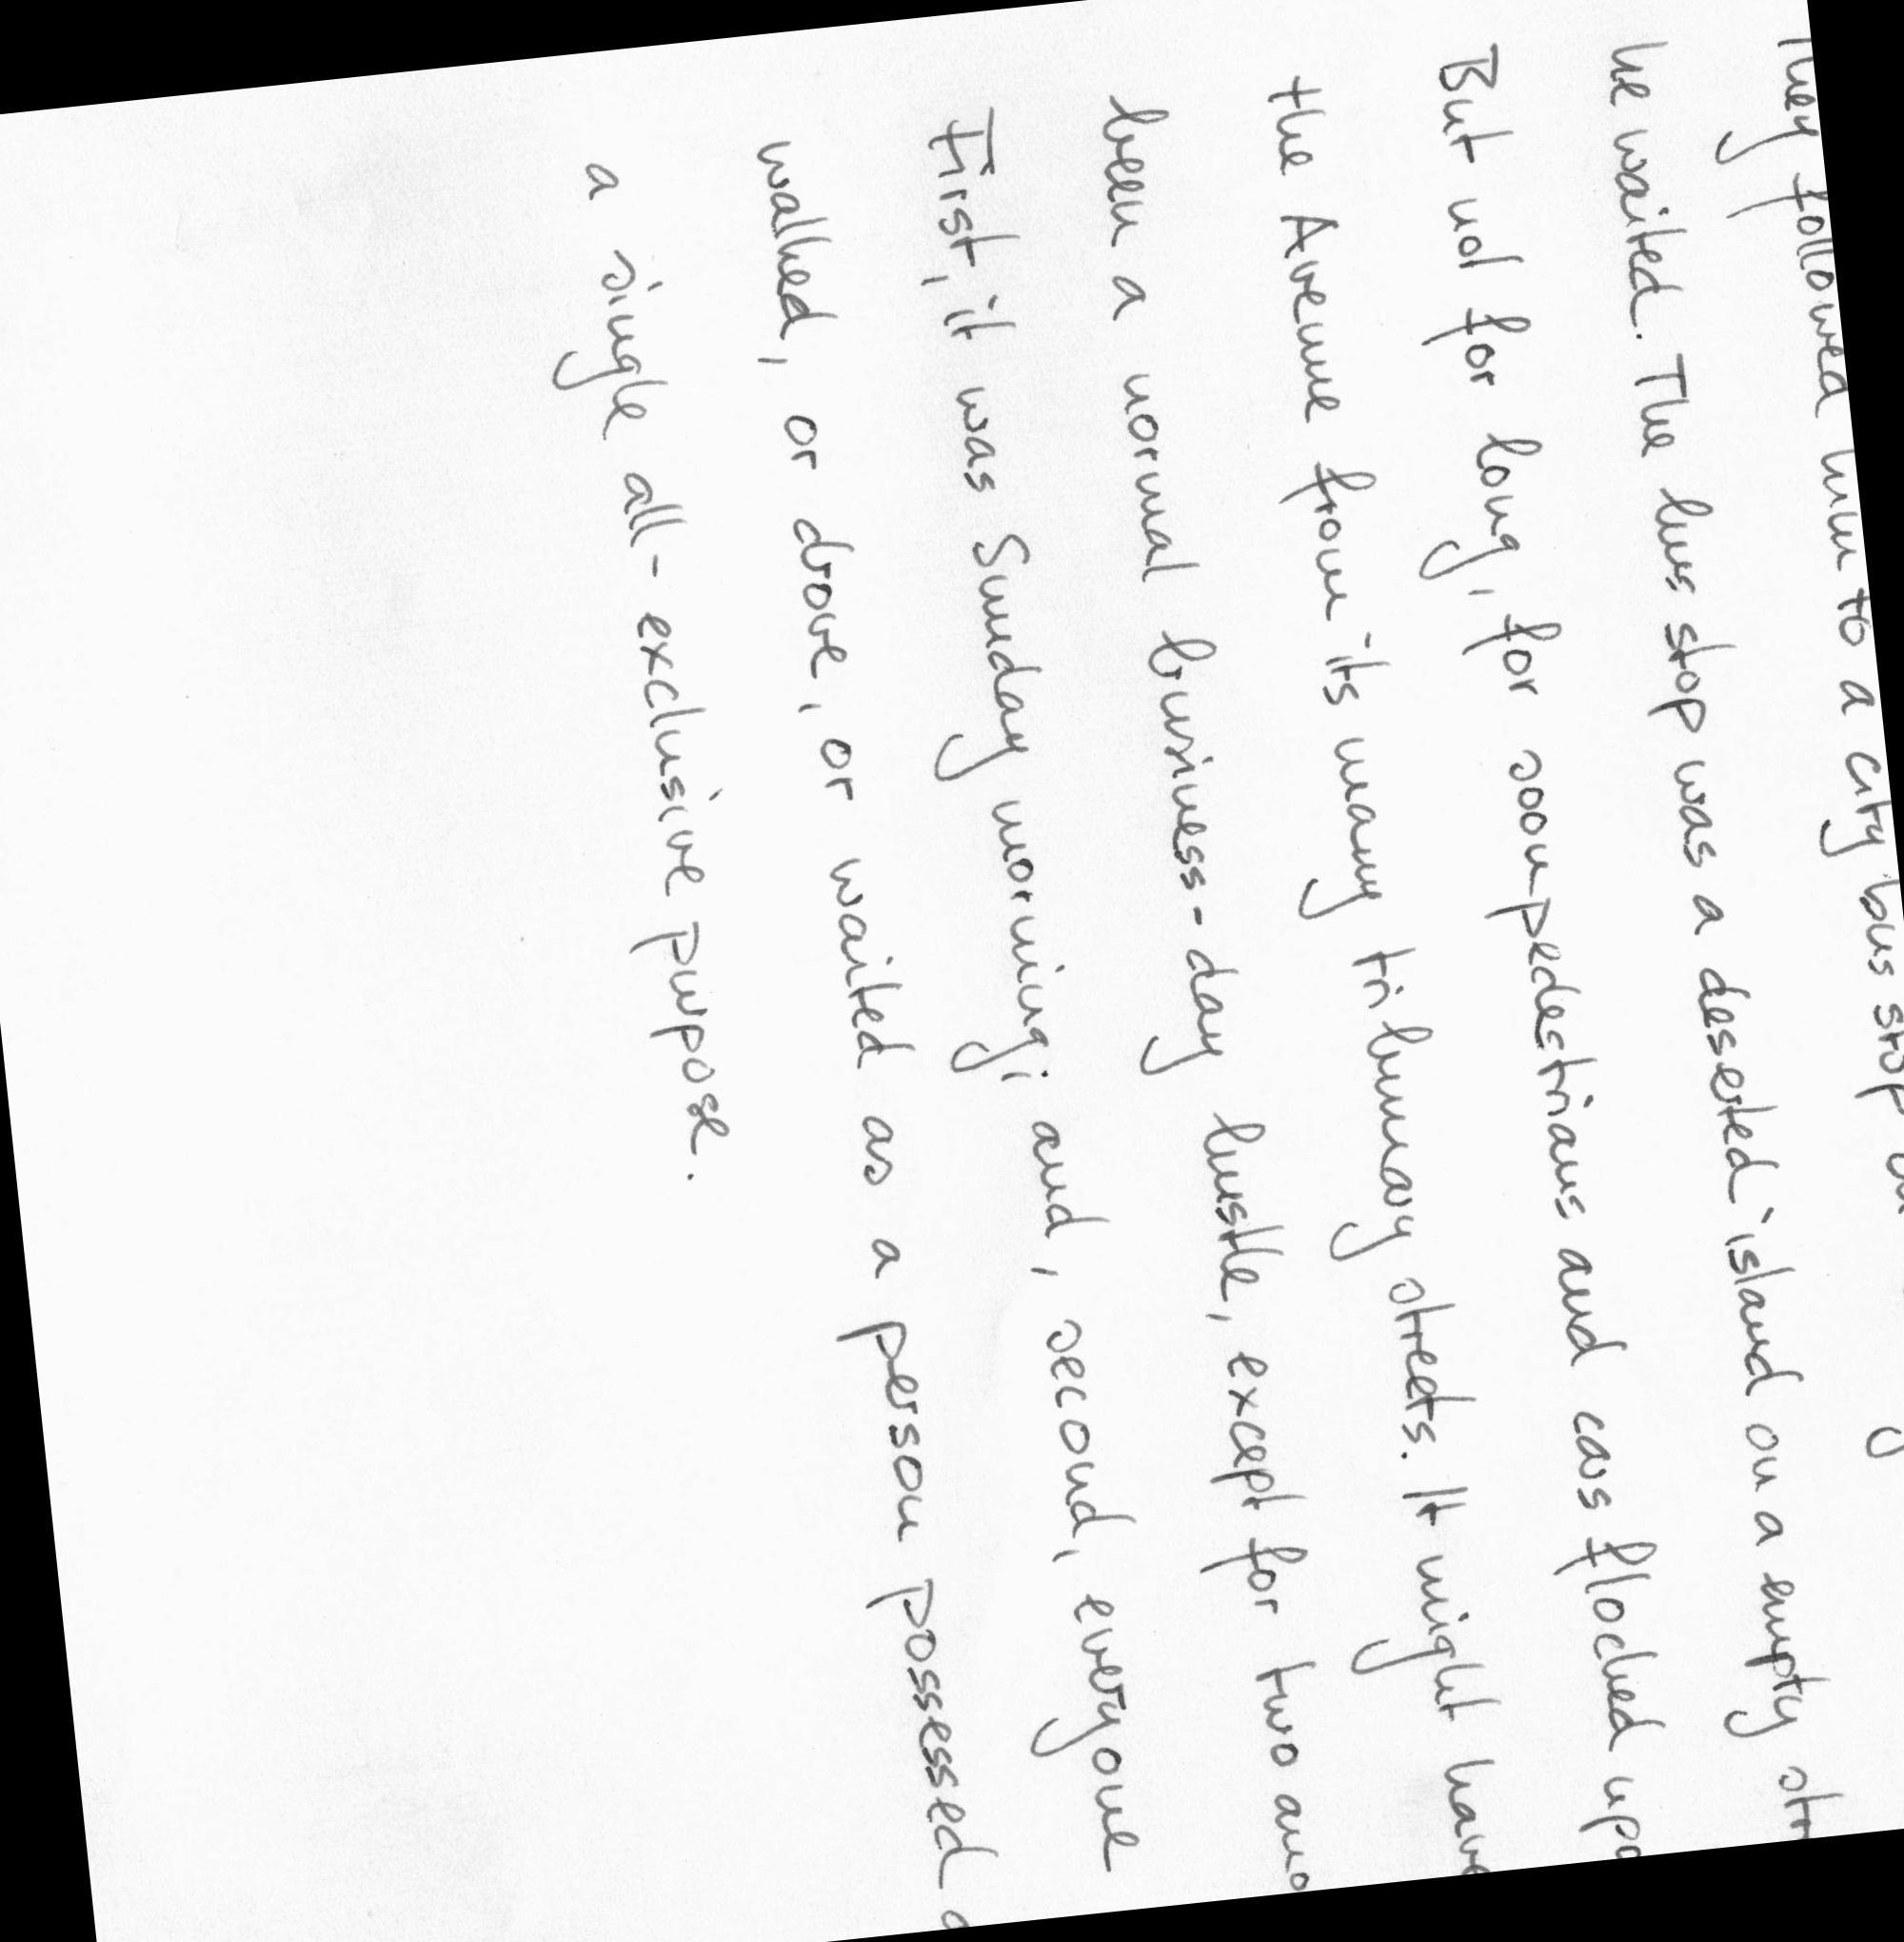 They followed him to a city bus stop
he waited. The bus stop was a deserted island on a empty
But not for long, for soon pedestrians and cars flocked
the Avenue from its many tributary streets. It might have
been a normal business-day bustle, except for two
First, it was Sunday morning; and, second, everyone
walked, or drove, or waited as a person possessed
a single all-exclusive purpose.